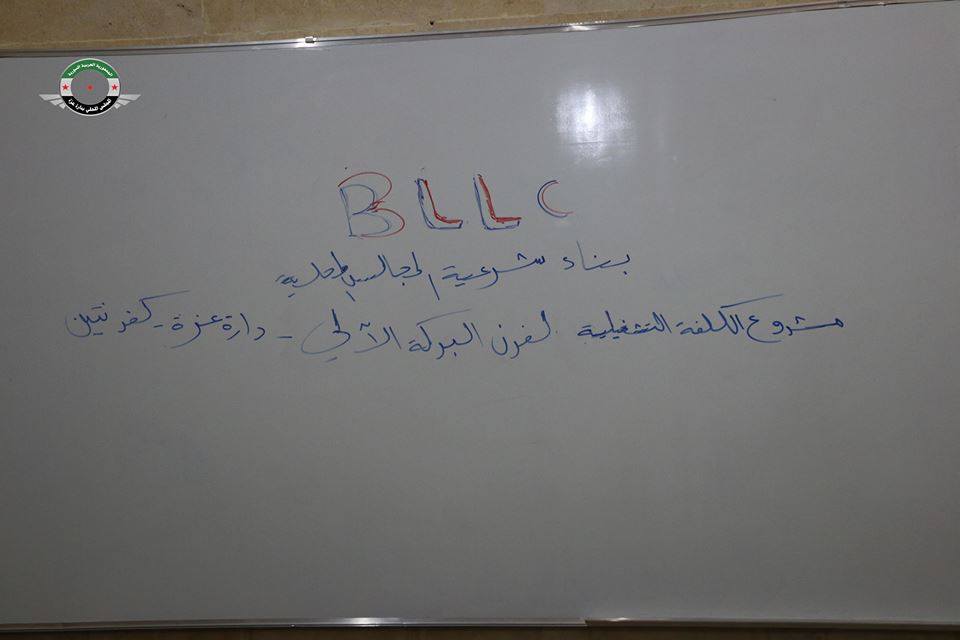 الجمهورية العربية السورية
المجلس المحلي بدارة عزة
BLLC
بناء شرعية المجالس المحلية
مشروع الكلفة التشغيلية لفرن البركة الآلي - دارة عزة - كفرنتين